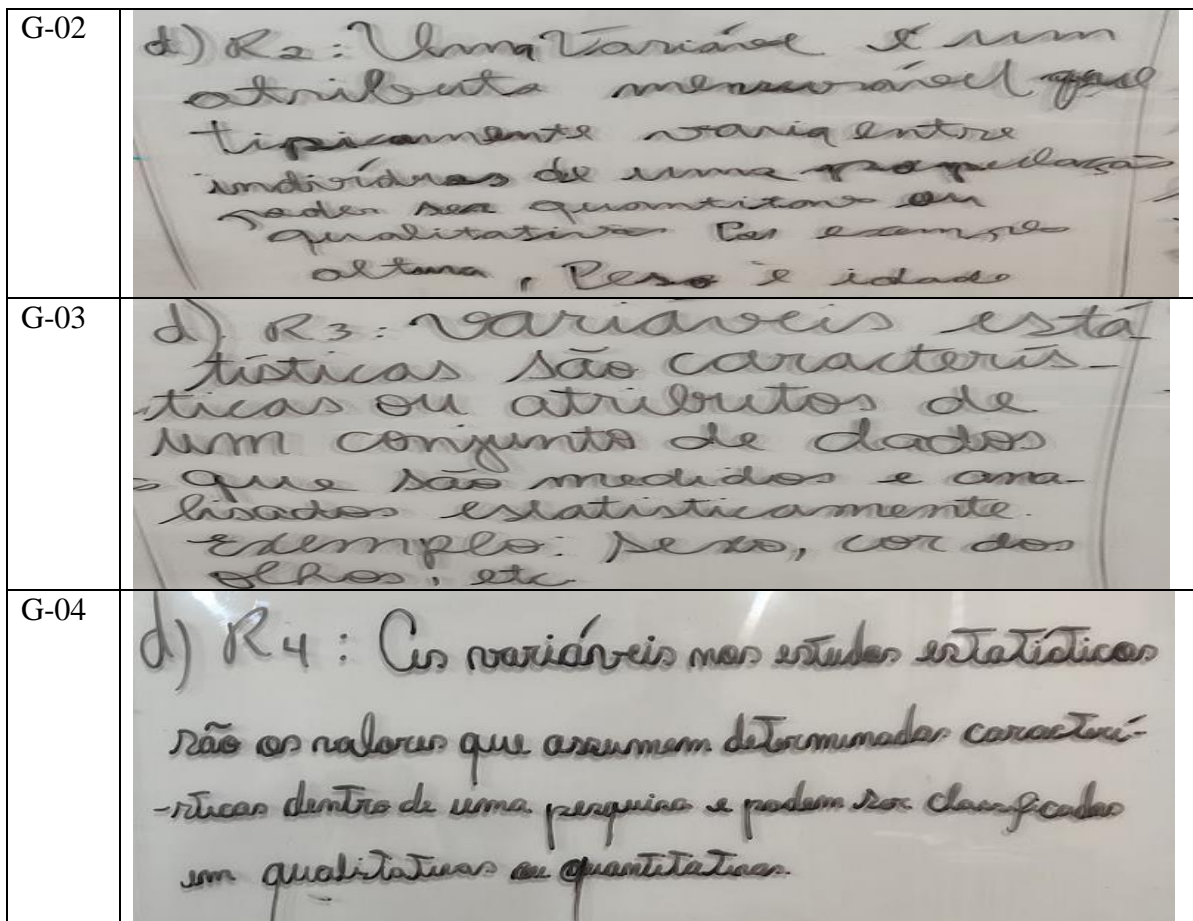 G-02
d) R2: Uma Variável é um
atributo mensurável que
tipicamente varia entre
indivíduos de uma população
poder ser quantitavo ou
qualitativo Por exemplo
altura, Peso e idade
G-03
d) R3: variáveis está
tísticas são caracterís-
ticas ou atributos de
um conjunto de dados
que são medidos e ana-
lisados estatisticamente.
Exemplo: sexo, cor dos
olhos, etc
G-04
d) R4: As variáveis nos estudos estatísticos
são os valores que assumem determinadas caracterí-
-sticas dentro de uma pesquisa e podem ser classificadas
em qualitativas ou quantitativas.